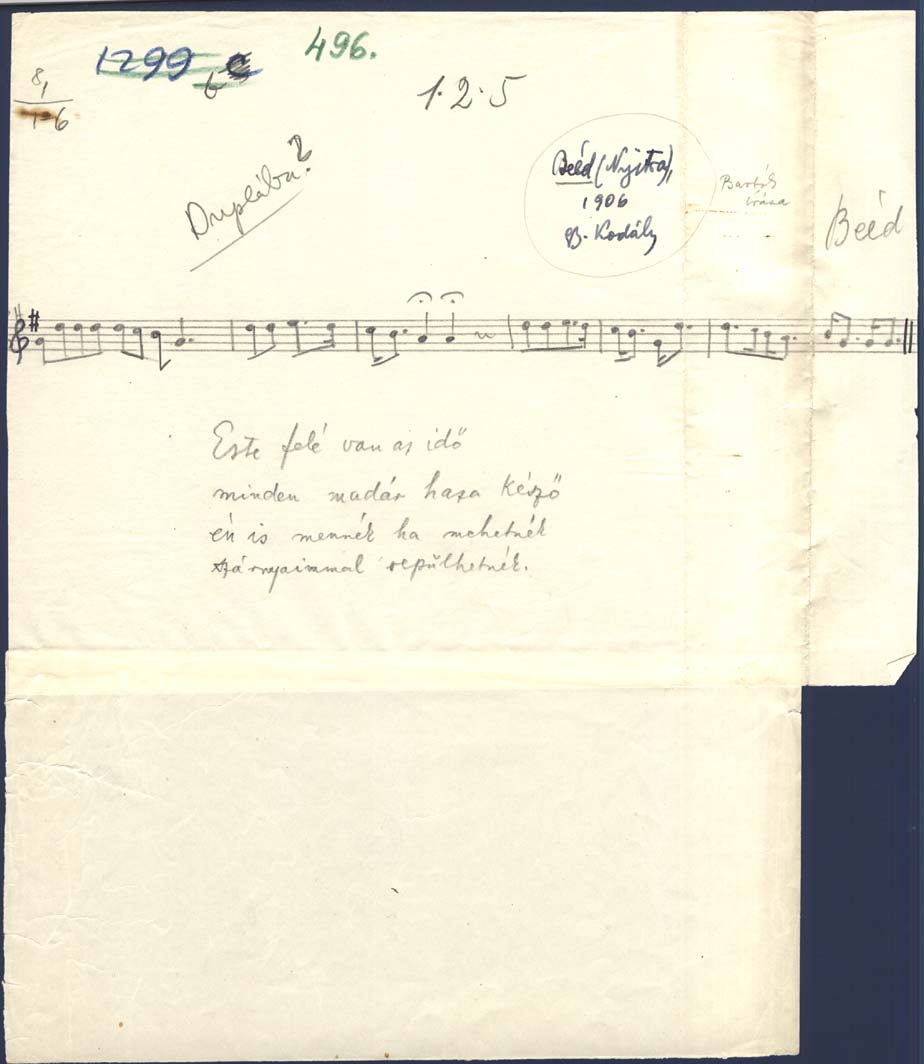 1299
496.
8,
1-6
1·2·5
Duplába?
Beéd (Nyitra),
1906
Kodály
Bartók
írása
Beéd
Este felé van az idő
minden madár haza késző
én is mennék ha mehetnék
szárnyaimmal repülhetnék.